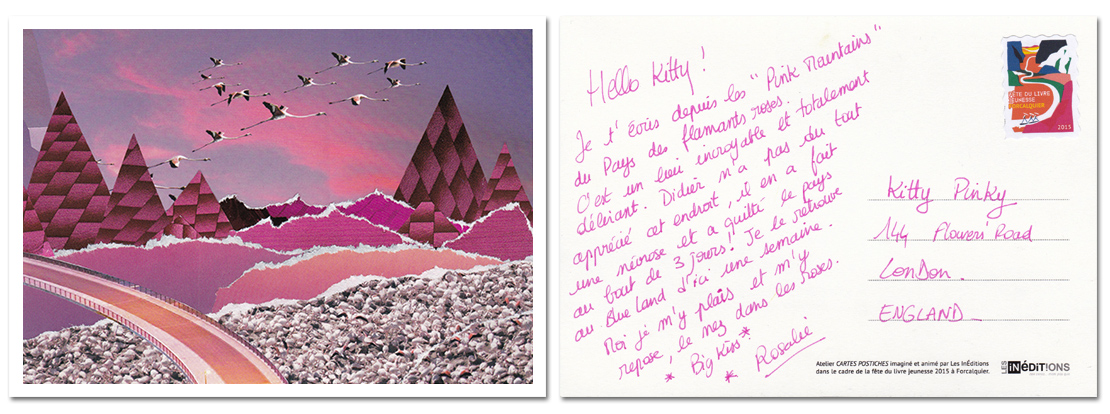 Hello Kitty !
Je t'écris depuis les "Pink Mountains"
du Pays des flamants roses.
C'est un lieu incroyable et totalement
délirant. Didier n'a pas du tout
apprécié cet endroit, il en a fait
une névrose et a quitté le pays
au bout de 3 jours ! Je le retrouve
au Blue Land d'ici une semaine.
Moi je m'y plais et m'y
repose, le nez dans les roses.
* Big Kiss *
* Rosalie
FÊTE DU LIVRE
JEUNESSE
FORCALQUIER
2015
Kitty Pinky
144 Flowers' Road
LonDon.
ENGLAND_
Atelier CARTES POSTICHES imaginé et animé par Les InÉditions
dans le cadre de la fête du livre jeunesse 2015 à Forcalquier.
LES INÉDIT!ONS